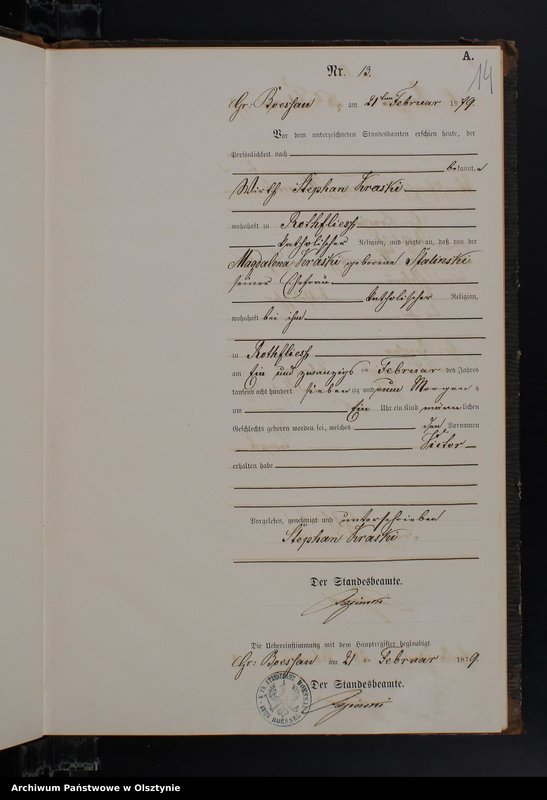 A.
14
Nr. 13.
Gr: Boessau, am 21ten Februar 1879.
Vor dem unterzeichneten Standesbeamten erschien heute, der
Persönlichkeit nach
bekannt, e
Wirth Stephan Kraski
wohnhaft zu Rothfliess
katholischer Religion, und zeigte an, daß von der
Magdalena Kraski geborene Stalinski
seiner Ehefrau
katholischer Religion,
wohnhaft bei ihm
zu Rothfliess
am Ein und zwanzigs ten Februar des Jahres
tausend acht hundert sieben zig und neun Morgen s
um Ein Uhr ein Kind männ lichen
Geschlechts geboren worden sei, welches den Vornamen
Victor
erhalten habe
Vorgelesen, genehmigt und unterschrieben
Stephan Kraski
Der Standesbeamte.
Die Uebereinstimmung mit dem Hauptregister beglaubigt
Gr: Boessau am 21 ten Februar 1879.
Der Standesbeamte.
Archiwum Państwowe w Olsztynie